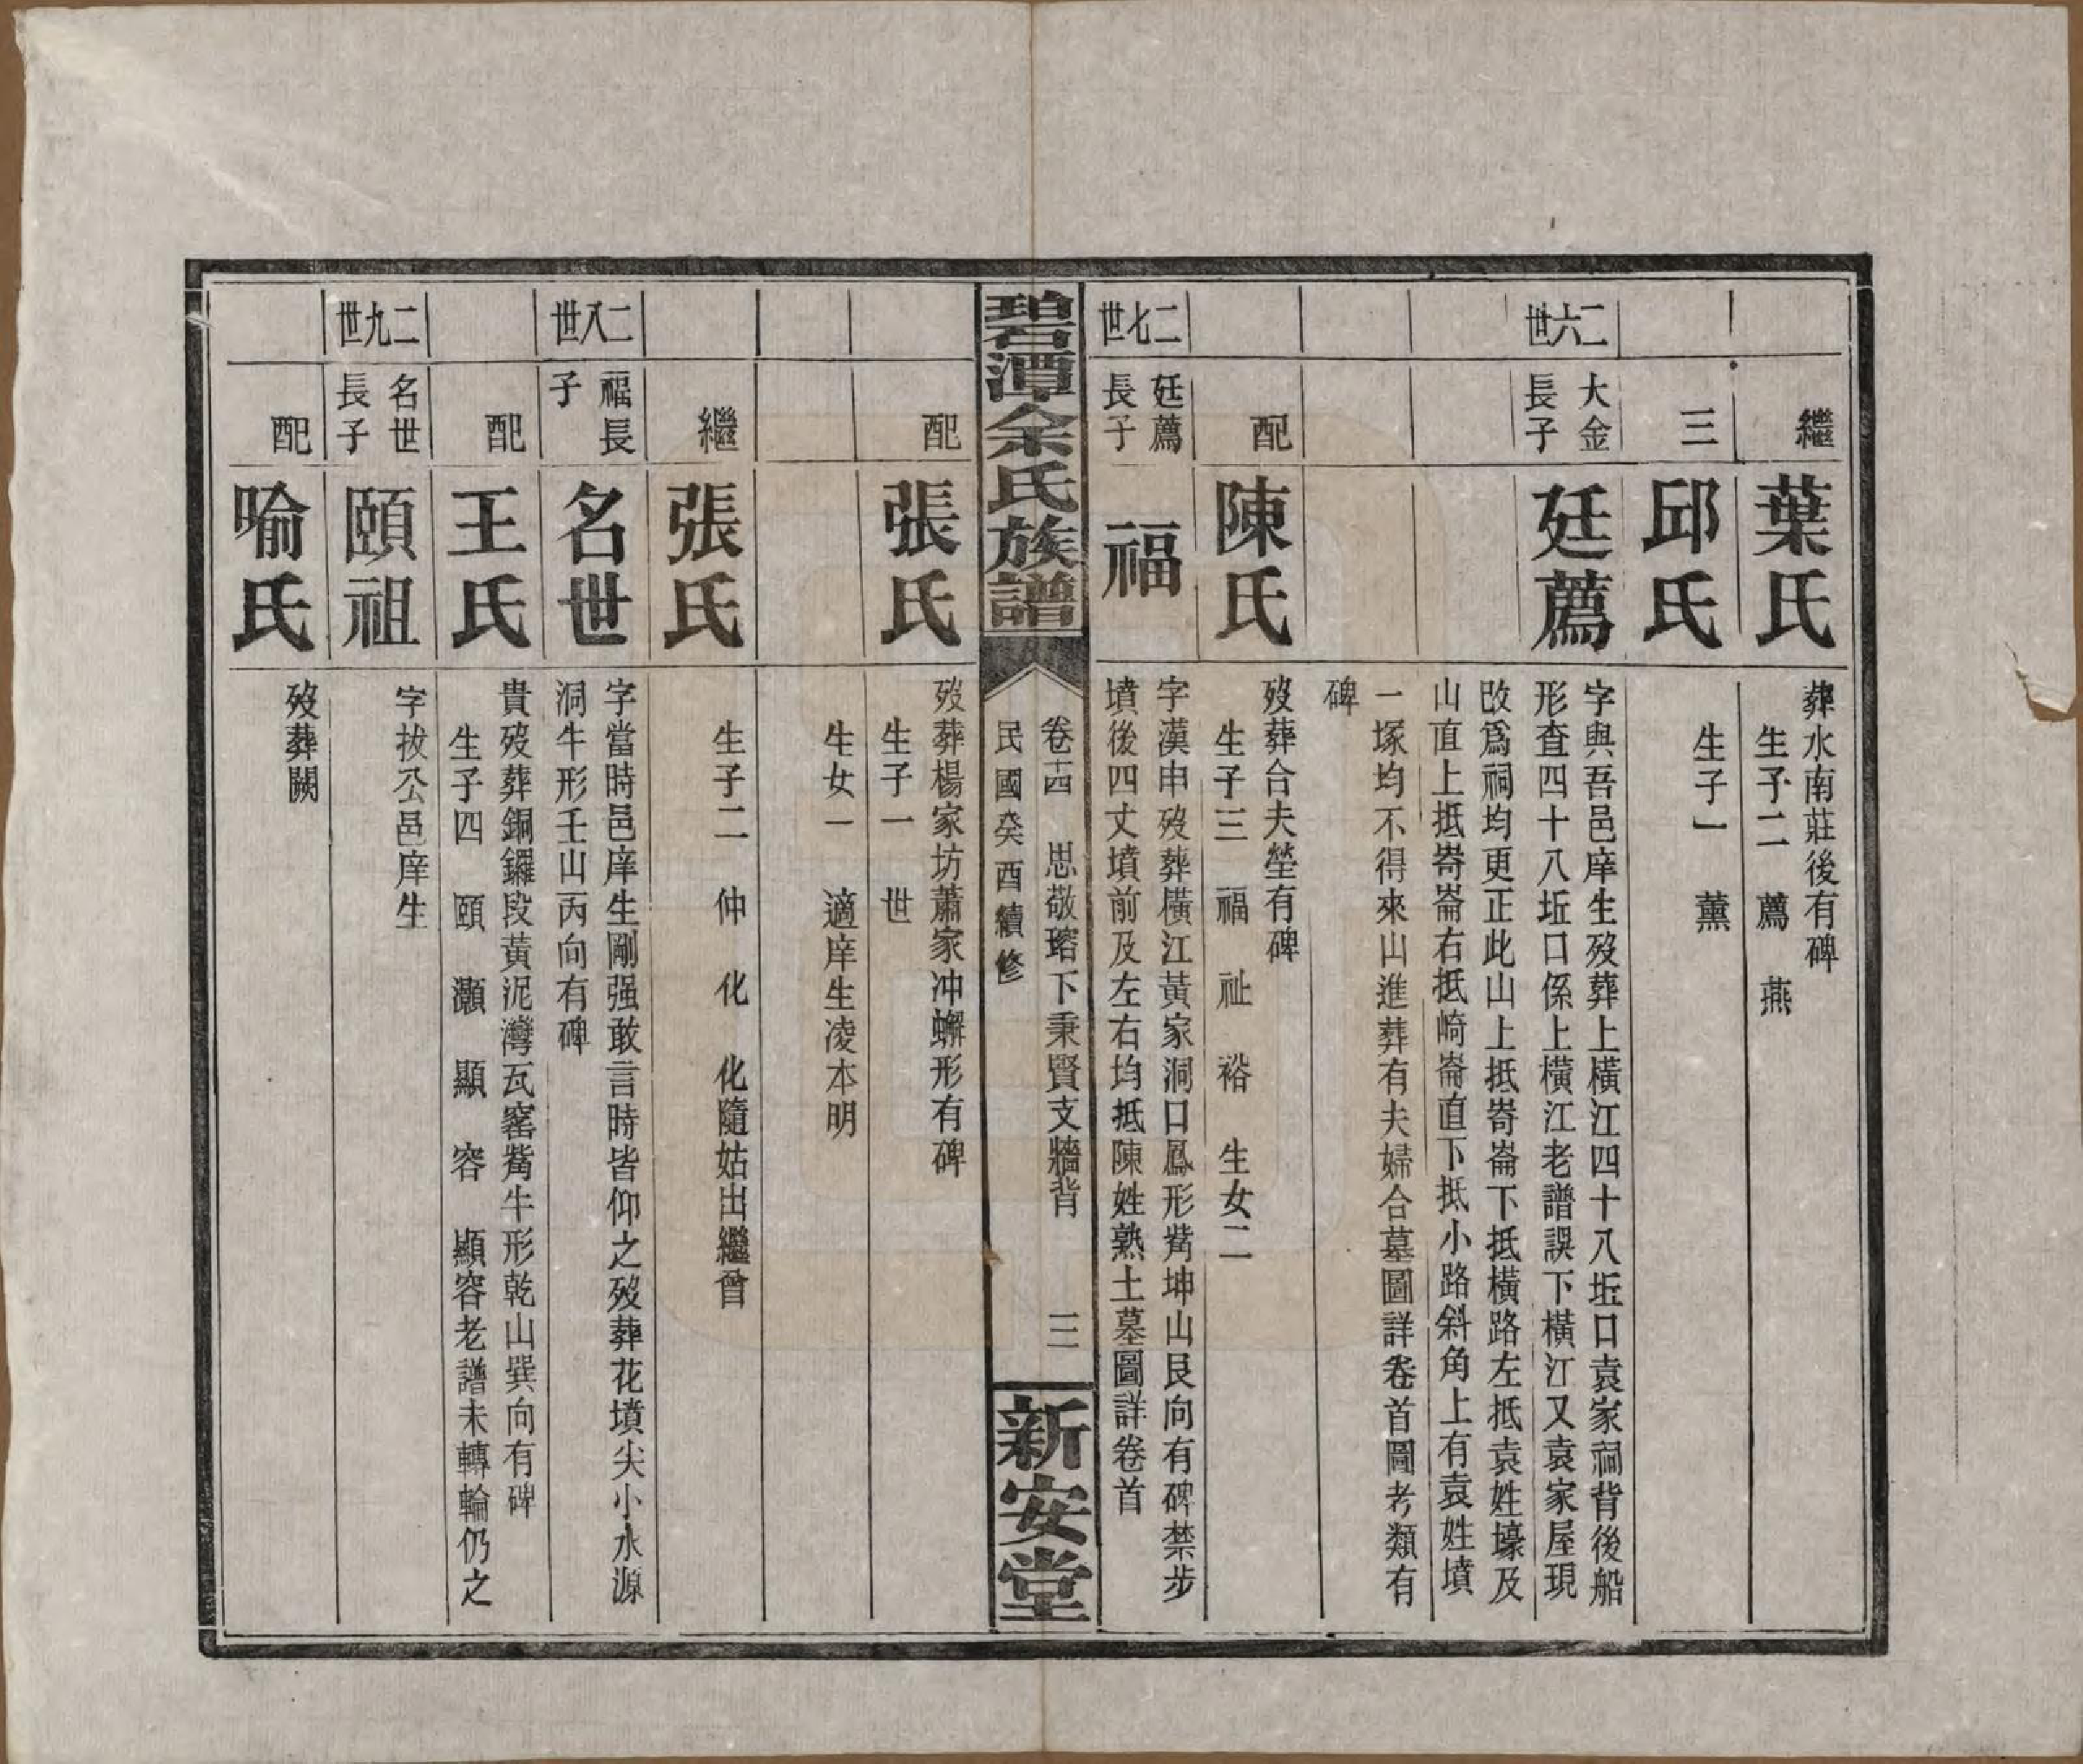 繼
葉氏
葬水南莊後有碑
生子二　薦　燕
三
邱氏
生子一　薰
二六世
大金
長子
廷薦
字與吾邑庠生歿葬上橫江四十八坵口袁家祠背後船
形查四十八坵口係上橫江老譜誤下橫江又袁家屋現
改爲祠均更正此山上抵嵜崙下抵橫路左抵袁姓壕及
山直上抵嵜崙右抵崎崙直下抵小路斜角上有袁姓墳
一塚均不得來山進葬有夫婦合墓圖詳卷首圖考類有
碑
配
陳氏
歿葬合夫塋有碑
生子三　福　祉　裕　生女二
二七世
廷薦
長子
福
字漢申歿葬橫江黃家洞口鳳形觜坤山艮向有碑禁步
墳後四丈墳前及左右均抵陳姓熟土墓圖詳卷首
碧潭余氏族譜
卷十四　思敬瑢下秉賢支牆背　三
民國癸酉續修
新安堂
配
張氏
歿葬楊家坊蕭家冲蠏形有碑
生子一　世
生女一　適庠生凌本明
繼
張氏
生子二　仲　化　化隨姑出繼曾
二八世
福長
子
名世
字當時邑庠生剛强敢言時皆仰之歿葬花墳尖小水源
洞牛形壬山丙向有碑
配
王氏
貴歿葬銅鑼段黃泥灣瓦窰觜牛形乾山巽向有碑
生子四　頤　灝　顯　容　顯容老譜未轉輪仍之
二九世
名世
長子
頤祖
字拔公邑庠生
配
喻氏
歿葬闕